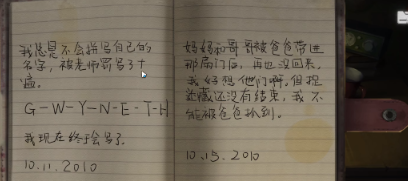 我总是不会拼写自己的
名字，被老师罚写了十
遍。
G-W-Y-N-E-T-H
我现在终于会写了。
10.11.2010
妈妈和哥哥被爸爸带进
那扇门后，再也没回来，
我好想他们啊。但捉
迷藏还没有结束，我不
能被爸爸抓到。
10.13.2010